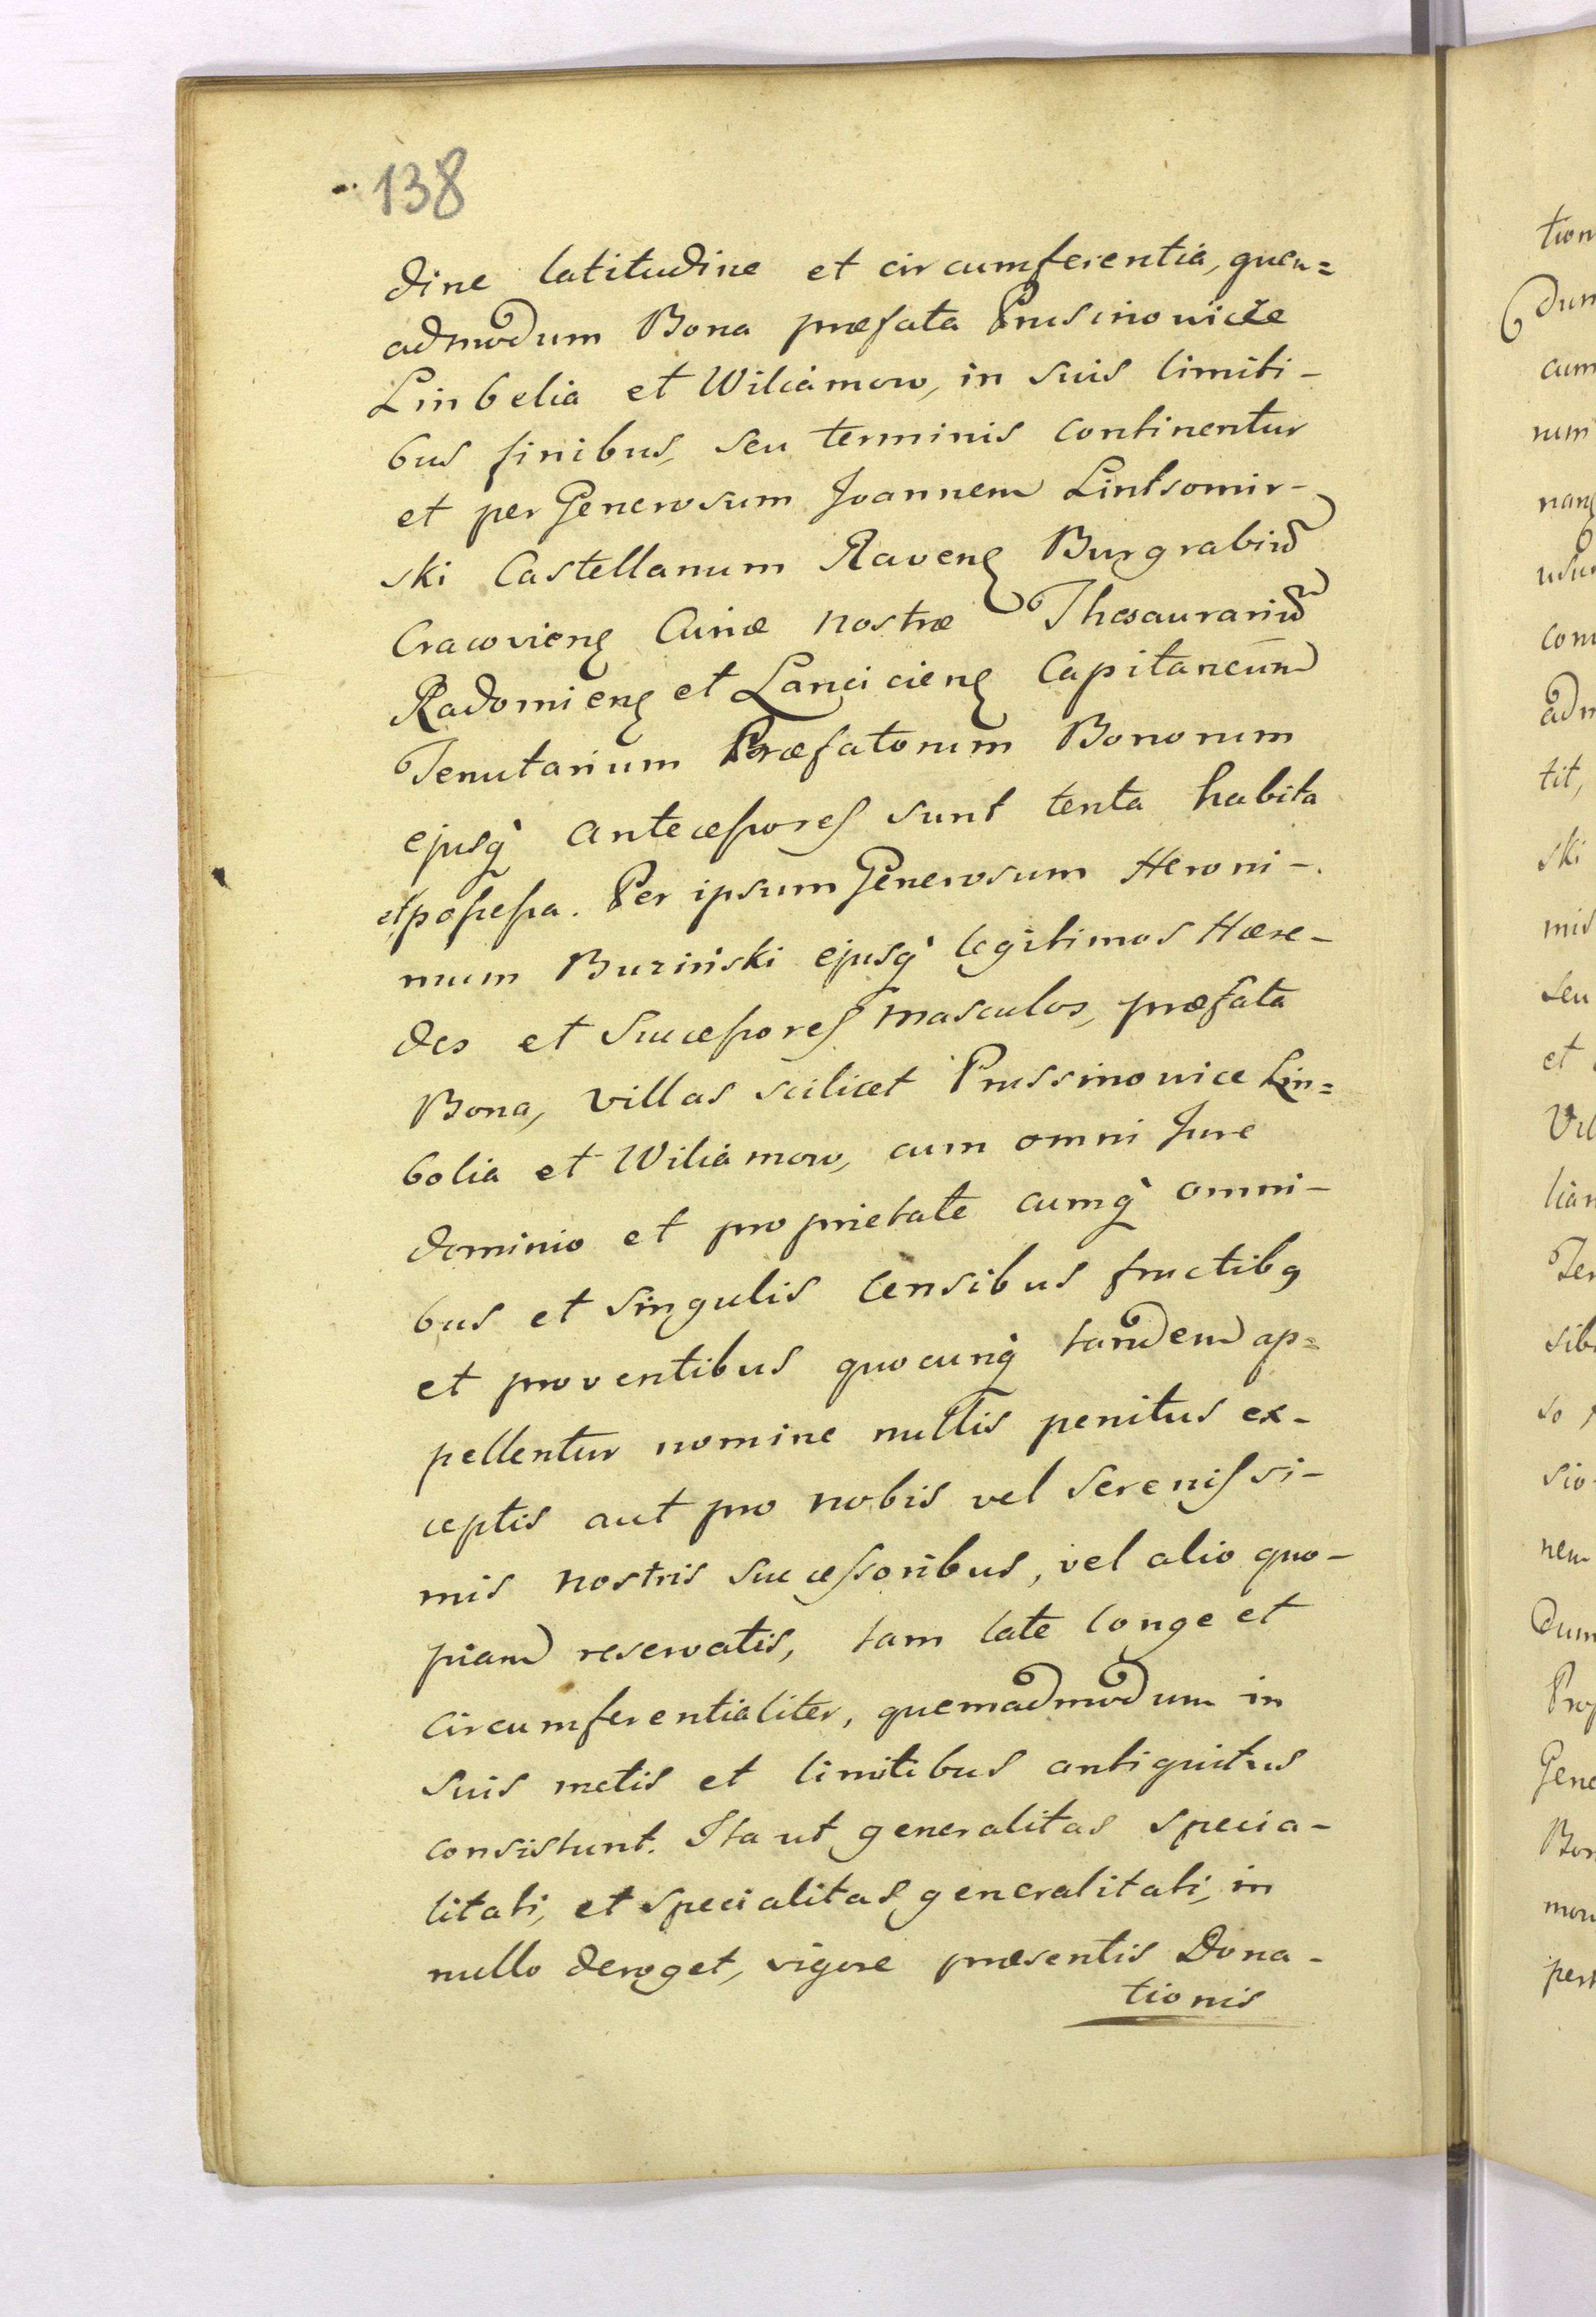 138
dine latitudine et circumferentia, quem=
admodum Bona præfata Prusinowice
Linbelia et Wiliamow, in suis limiti-
bus finibus, seu terminis continentur
et per Generosum Joannem Lintsomir-
ski Castellanum Ravenẽ Burgrabiũ
Cracovienẽ Curiæ nostræ Thesaurariũ
Radomienẽ et Lancicienẽ Capitaneum
Tenutarium Præfatorum Bonorum
ejusq̀ antecessores sunt tenta habita
et possessa. Per ipsum Generosum Heroni-
mum Buziński ejusq̀ legitimos Hære-
des et Successores masculos, præfata
Bona, villas scilicet Prussinowice Lin=
bolia et Wiliamow, cum omni Jure
dominio et proprietate cumq̀ omni-
bus et singulis Censibus fructibq
et proventibus quocunq̀ tandem ap=
pellentur nomine nullis penitus ex-
ceptis aut pro nobis vel Serenissi-
mis nostris successoribus, vel alio quo-
piam reservatis, tam late longe et
circumferentialiter, quemadmodum in
suis metis et limitibus antiquitus
consistunt. Ita ut generalitas specia-
litati, et specialitas generalitati, in
nullo deroget, vigore præsentis Dona-
tionis